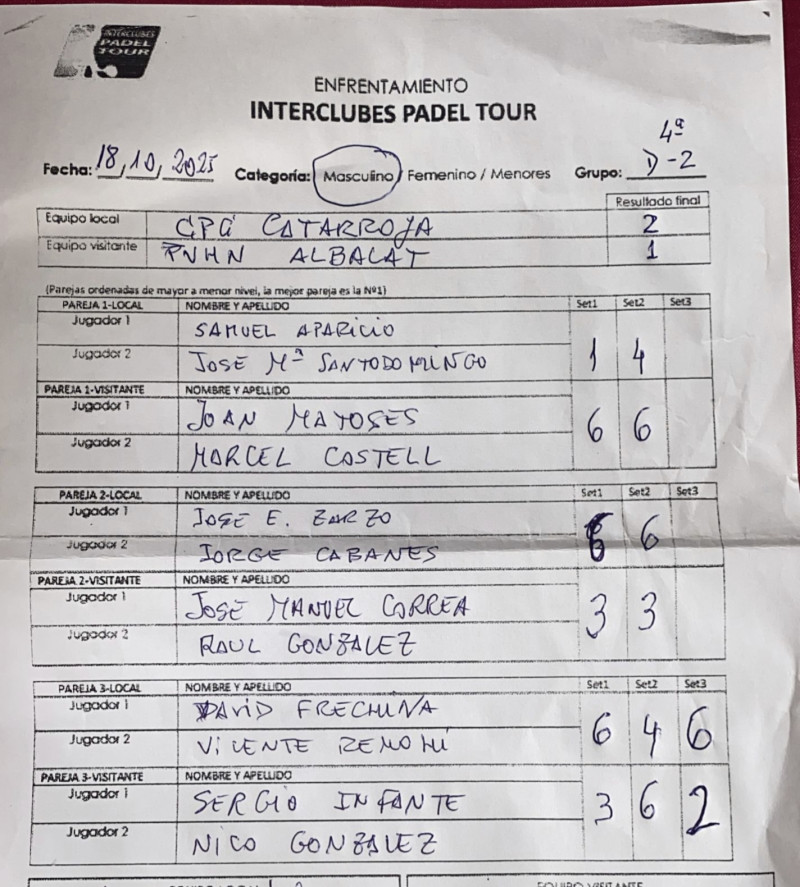 INTERCLUBES
PADEL
TOUR
ENFRENTAMIENTO
INTERCLUBES PADEL TOUR
4ª
Fecha: 18, 10, 2025 Categoría: Masculino / Femenino / Menores Grupo: D-2
Resultado final
Equipo local CPG CATARROJA 2
Equipo visitante PNHN ALBALAT 1
(Parejas ordenadas de mayor a menor nivel, la mejor pareja es la Nº1)
PAREJA 1-LOCAL NOMBRE Y APELLIDO Set1 Set2 Set3
Jugador 1 SAMUEL APARICIO
Jugador 2 JOSE Mª SANTODOMINGO 1 4
PAREJA 1-VISITANTE NOMBRE Y APELLIDO
Jugador 1 JOAN MATOSES 6 6
Jugador 2 MARCEL CASTELL
PAREJA 2-LOCAL NOMBRE Y APELLIDO Set1 Set2 Set3
Jugador 1 JOSE E. ZARZO 6 6
Jugador 2 JORGE CABANES
PAREJA 2-VISITANTE NOMBRE Y APELLIDO
Jugador 1 JOSE MANUEL CORREA 3 3
Jugador 2 RAUL GONZALEZ
PAREJA 3-LOCAL NOMBRE Y APELLIDO Set1 Set2 Set3
Jugador 1 DAVID FRECHINA 6 4 6
Jugador 2 VICENTE REMOHÍ
PAREJA 3-VISITANTE NOMBRE Y APELLIDO
Jugador 1 SERGIO INFANTE 3 6 2
Jugador 2 NICO GONZALEZ
EQUIPO VISITANTE